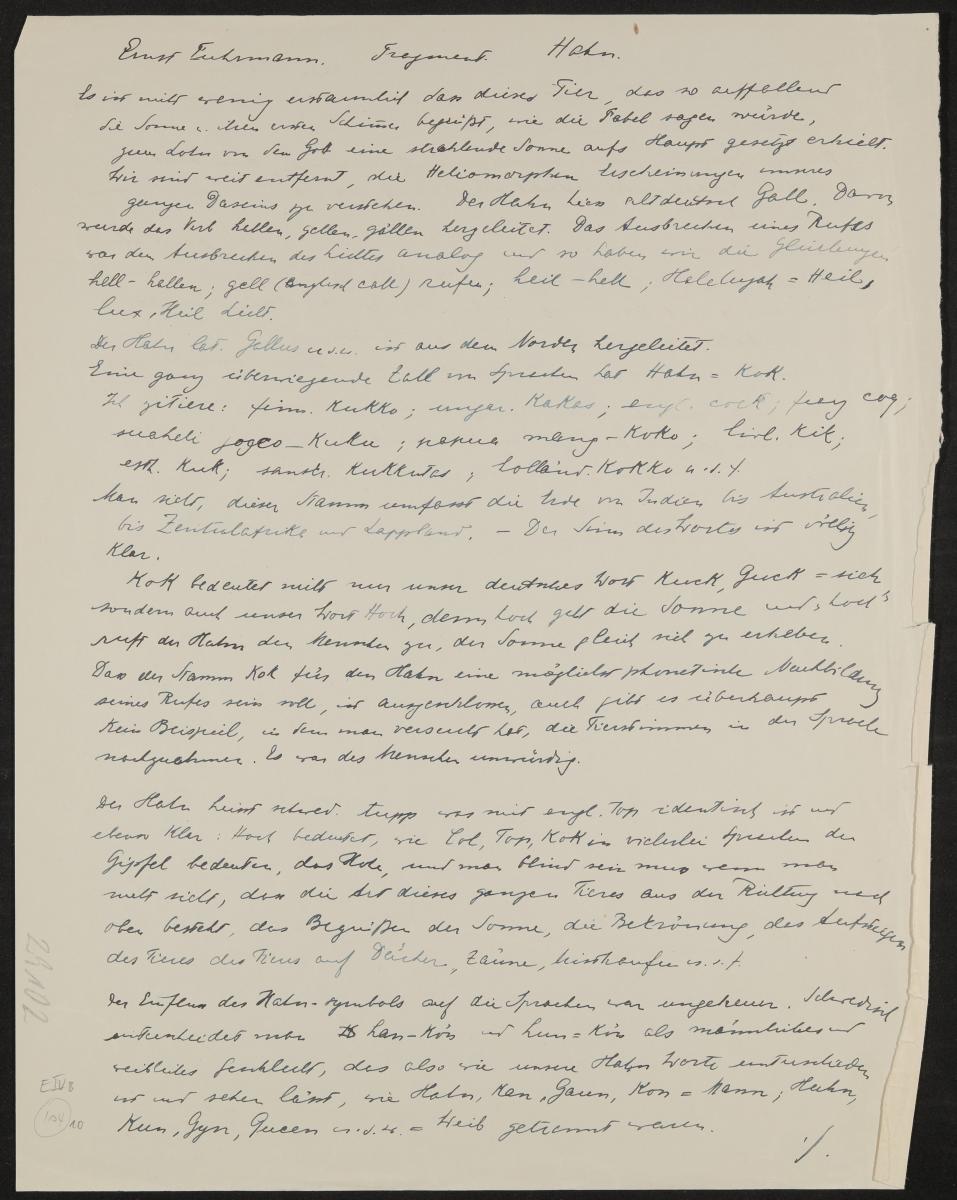 Ernst Fuhrmann. Fragment. Hahn.
Es ist nicht wenig erstaunlich dass dieses Tier, das so auffallend
die Sonne u. ihren ersten Schimmer begrüßt, wie die Fabel sagen würde,
zum Lohn von dem Gott eine strahlende Sonne aufs Haupt gesetzt erhielt.
Wir sind weit entfernt, die Heliomorphen Erscheinungen unseres
ganzen Daseins zu verstehen. Der Hahn hiess altdeutsch Gall. Davon
wurde das Verb hallen, gellen, gällen hergeleitet. Das Ausbrechen eines Rufes
war dem Ausbrechen des Lichtes analog und so haben wir die Gleichungen
hell - hallen; gell (englisch call) rufen; heil - hell; Halelujah = Heil,
lux, Heil Licht.
Der Hahn lat. Gallus u.s.w. ist aus dem Norden hergeleitet.
Eine ganz überwiegende Zahl von Sprachen hat Hahn = Kok.
Ich zitiere: finn. Kukko; ungar. Kakas; engl. cock; franz coq;
suaheli jogoo - Kuku; papua mang - Koko; livl. Kik;
esth. Kuk; sanscr. Kukkutas; holländ. Kokko u.s.f.
Man sieht, dieser Stamm umfasst die Erde von Indien bis Australien,
bis Zentralafrika und Lappland. - Der Sinn des Wortes ist völlig
klar.
Kok bedeutet nicht nur unser deutsches Wort Kuck, Guck = sieh
sondern auch unser Wort Hoch, denn hoch geht die Sonne und "hoch"
ruft der Hahn den Menschen zu, der Sonne gleich sich zu erheben.
Dass der Stamm Kok für den Hahn eine möglichst phonetische Nachbildung
seines Rufes sein soll, ist ausgeschlossen, auch gibt es überhaupt
kein Beispiel, in dem man versucht hat, die Tierstimmen in der Sprache
nachzuahmen. Es war des Menschen unwürdig.
Der Hahn heisst schwed. tupp was mit engl. Top identisch ist und
ebenso klar: Hoch bedeutet, wie Top, Kok in vielerlei Sprachen den
Gipfel bedeuten, das Hohe, und man blind sein muss wenn man
nicht sieht, dass die Art dieses ganzen Tieres aus der Richtung nach
oben besteht, das Begrüßen der Sonne, die Bekrönung, das Aufsteigen
des Tieres des Tieres auf Dächer, Zäune, Misthaufen u.s.f.
Der Einfluss des Hahn-symbols auf die Sprachen war ungeheuer. Schwedisch
unterscheidet man han-Kön und hun=Kön als männliches und
weibliches Geschlecht, das also wie unsere Hahn Worte unterschieden
ist und sehen lässt, wie Hahn, Kan, Gaun, Kon = Mann; Huhn,
Kun, Gyn, Queen u.s.w. = Weib getrennt waren.
./.
29102
E IV 8
10